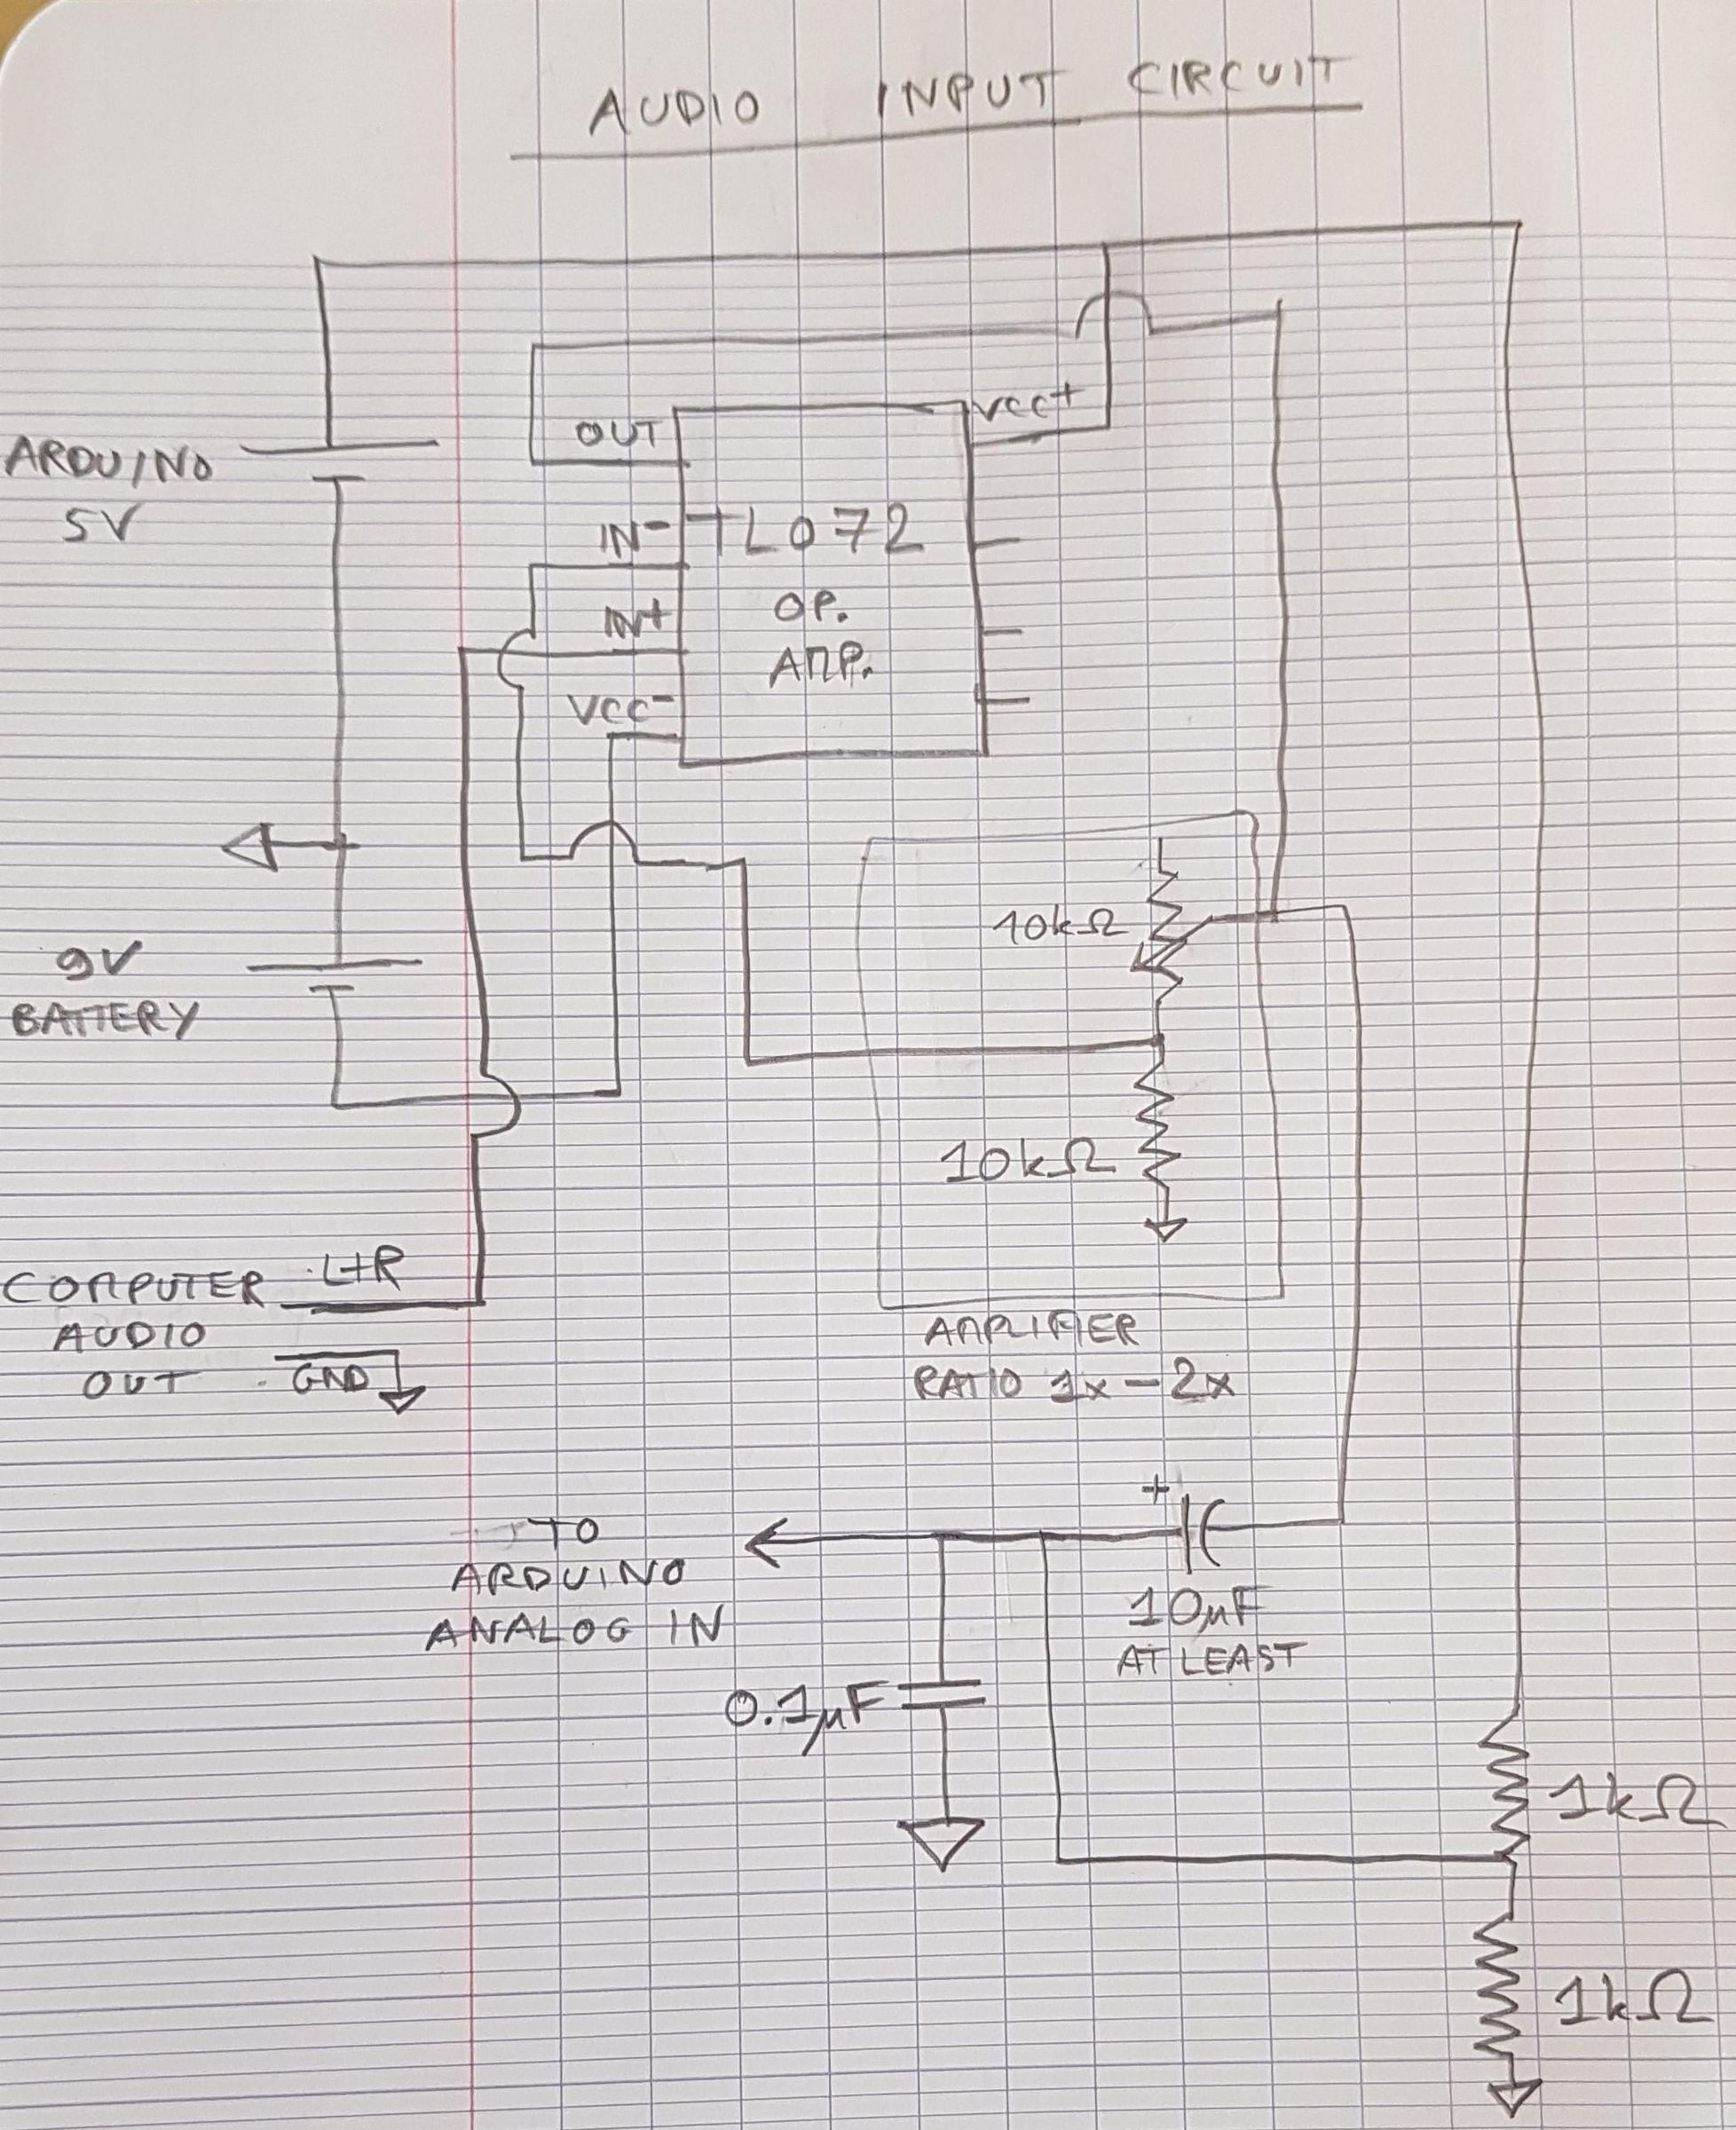 AUDIO INPUT CIRCUIT
VCC+
OUT
ARDUINO
5V
IN-
TL072
IN+
OP.
AMP.
VCC-
10kΩ
9V
BATTERY
10kΩ
L+R
COMPUTER
AUDIO
OUT
GND
AMPLIFIER
RATIO 1x - 2x
+
TO
ARDUINO
ANALOG IN
10µF
AT LEAST
0.1µF
1kΩ
1kΩ